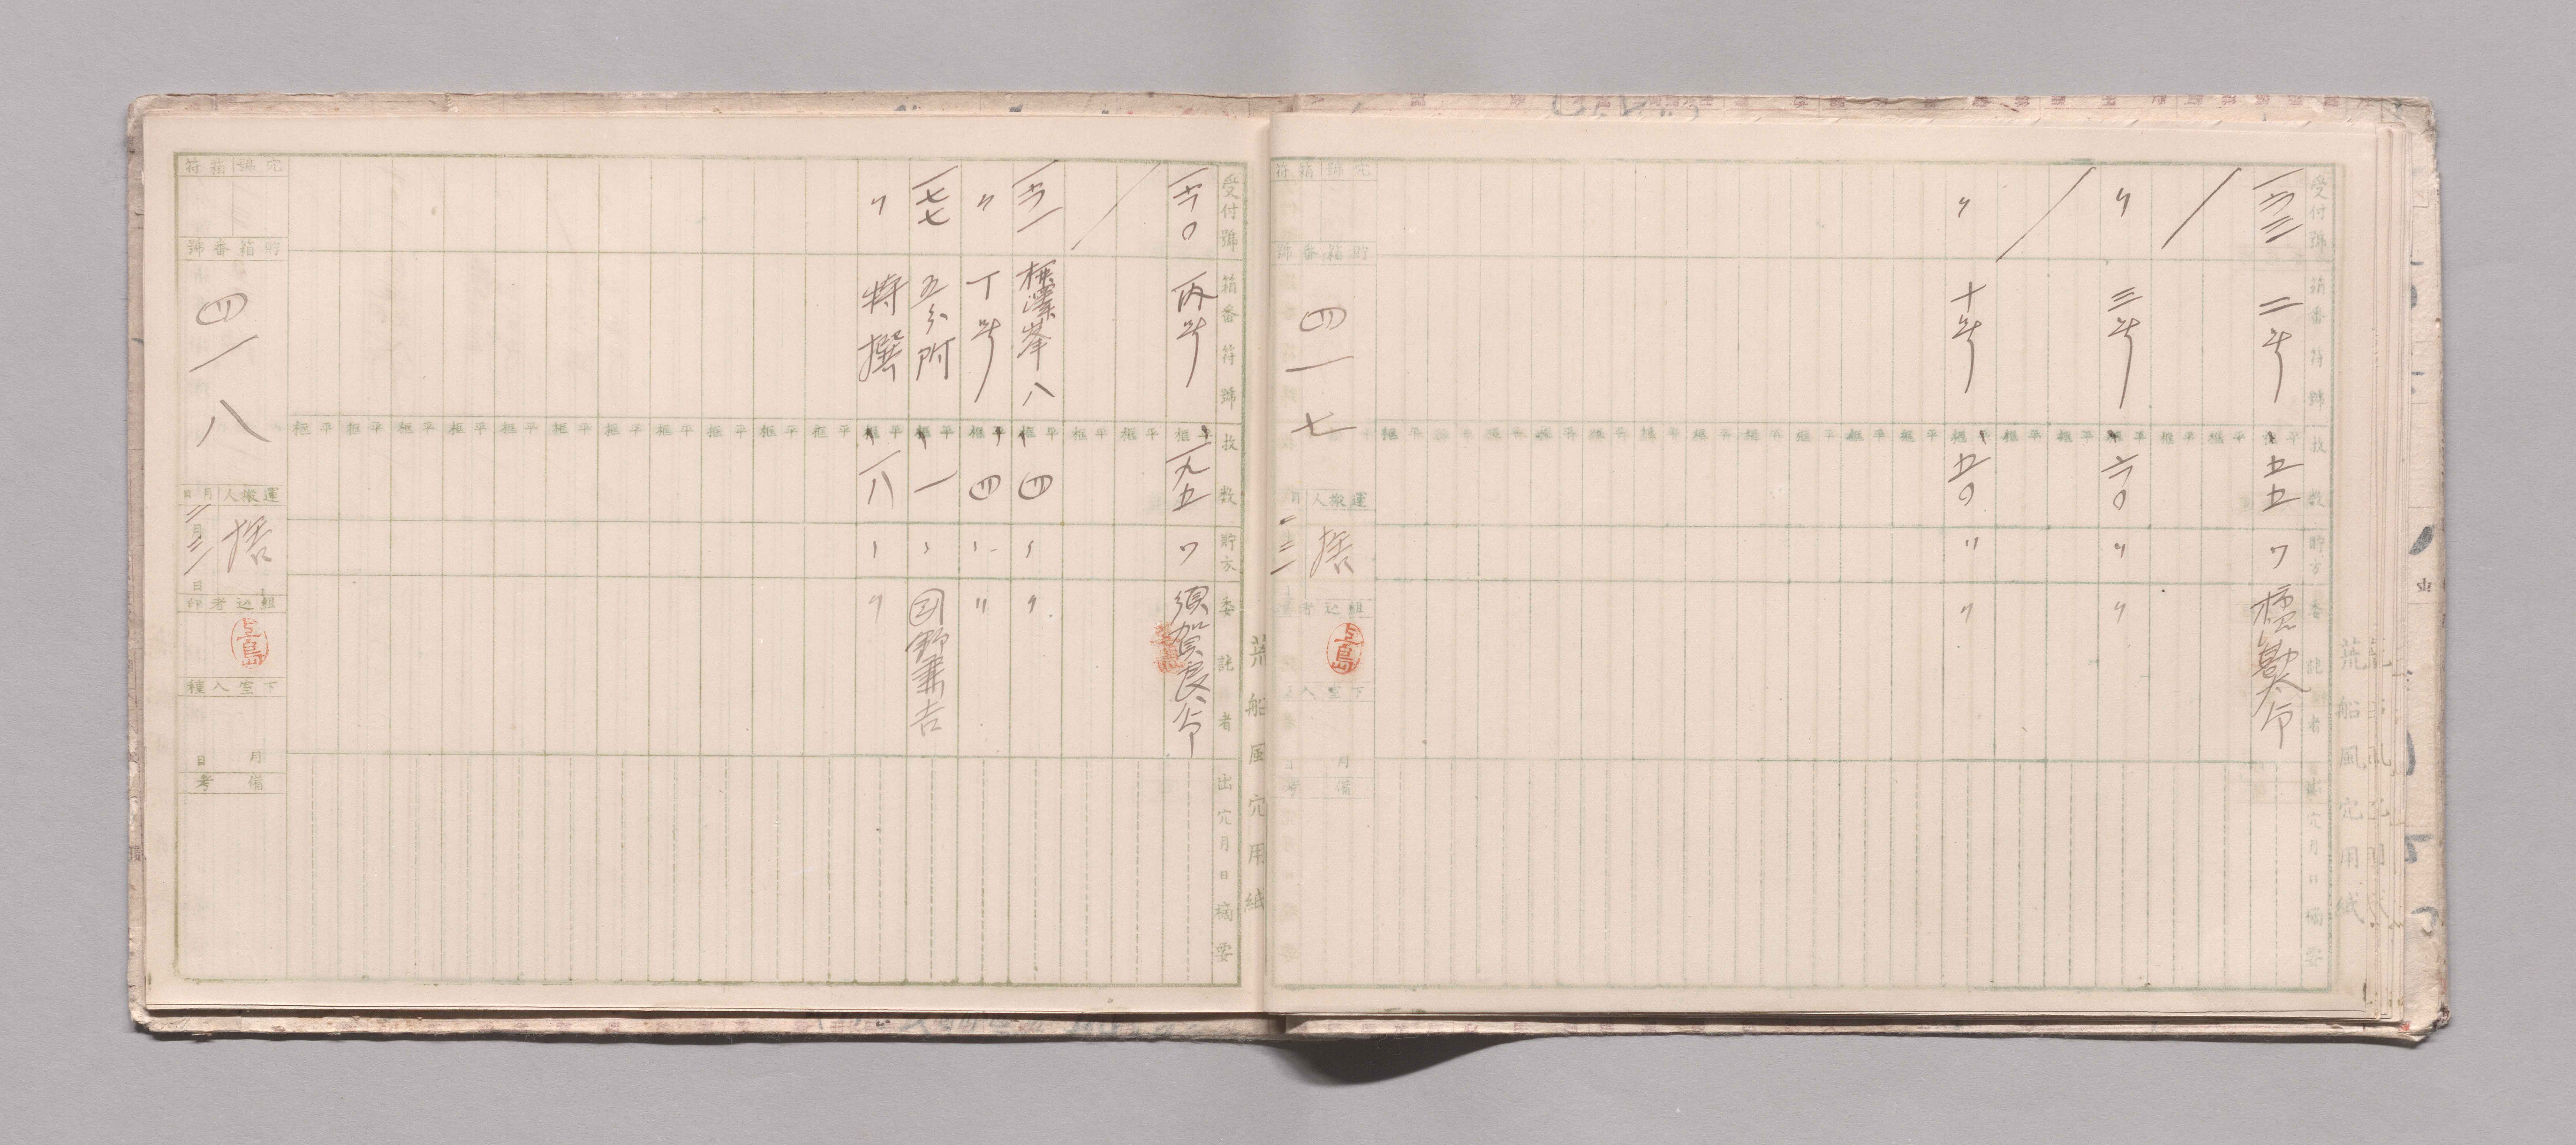 荒船風穴用紙
受付號
箱番符號
枚数
貯方
委託者
出穴月日
摘要
一六三
二号
五五
〃
三号
六〇
〃
〃
〃
十号
五〇
〃
〃
穴號
箱符
貯箱番號
四一七
運搬人
捨
二
三
組込者印
上島
下室入種
月
日
備考
荒船風穴用紙
受付號
箱番符號
枚数
貯方
委託者
出穴月日
摘要
一六〇
丙号
一九五
須賀良命
一六一
八
四
〃
〃
丁号
四
〃
一七七
五分附
一
野兼吉
〃
特撰
一八
〃
平框
穴號
箱符
貯箱番號
四一八
運搬人
捨
月日
二月三日
組込者印
上島
下室入種
月
日
備考